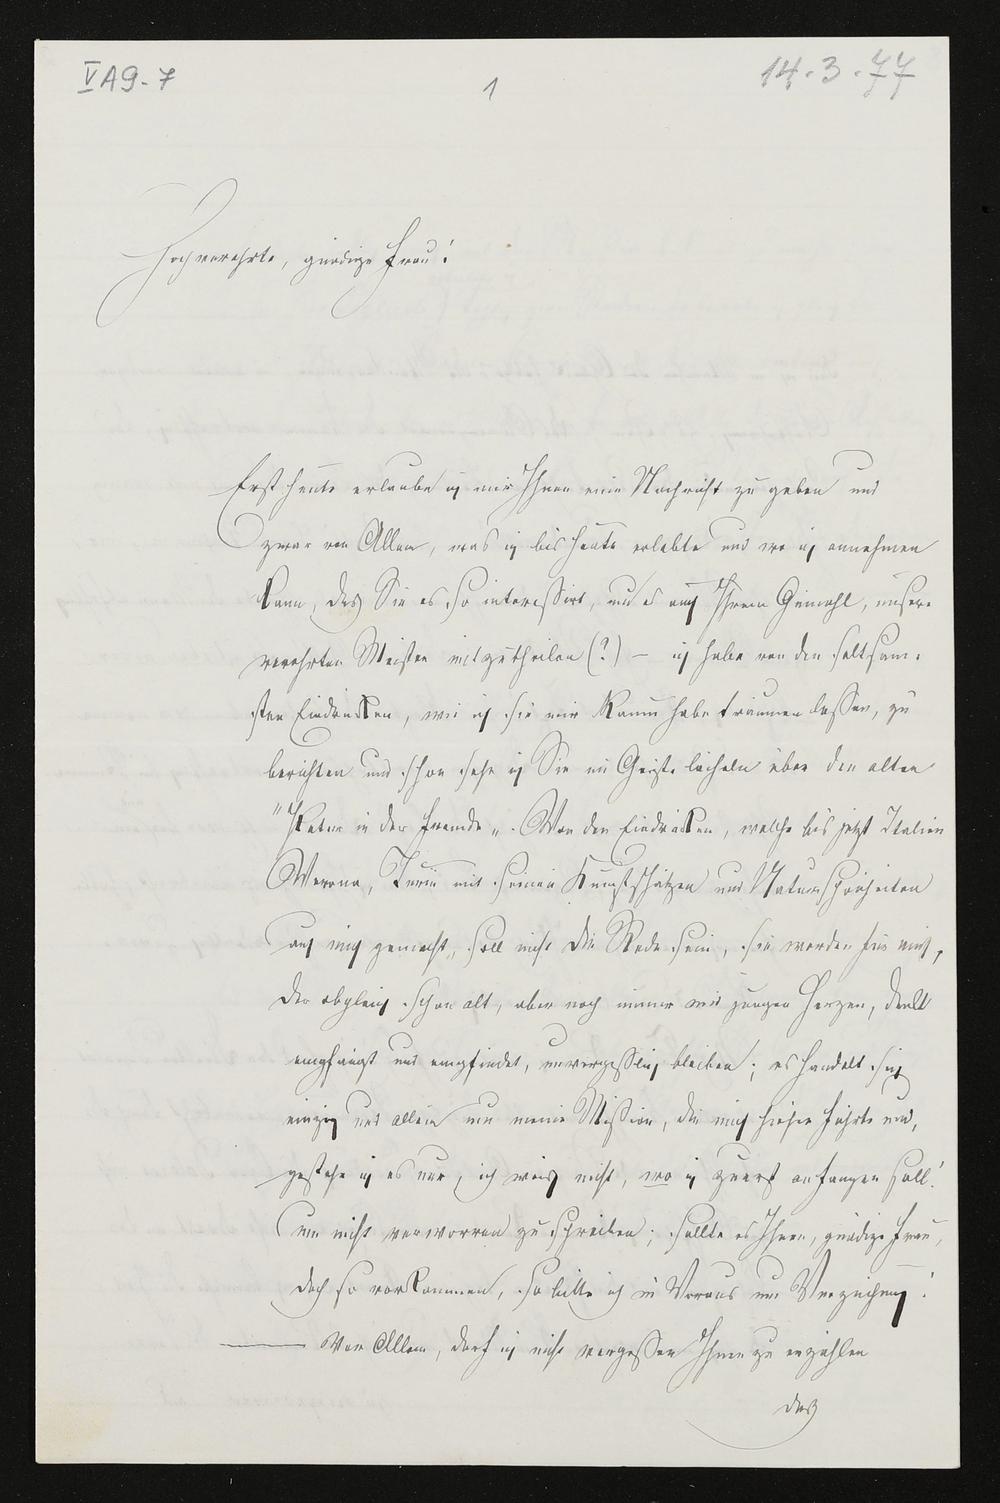 V A 9 - 7
1
14.3.77
Hochverehrte, gnädige Frau!
Erst heute erlaube ich mir Ihnen eine Nachricht zu geben und
zwar von Allem, was ich bis heute erlebte und wo ich annehmen
kann, daß Sie es so interessirt, um es auch Ihrem Gemahl, unserem
verehrten Meister mitzutheilen (?) — ich habe von den seltsam-
sten Eindrücken, wie ich sie mir kaum habe träumen lassen, zu
berichten und schon sehe ich Sie im Geiste lächeln über den alten
"Peter in der Fremde". Von den Eindrücken, welche bis jetzt Italien
Verona, Turin mit seinen Kunstschätzen und Naturschönheiten
auf mich gemacht, soll nicht die Rede sein, sie werden für mich,
der obgleich schon alt, aber noch immer mit jungen Herzen, denkt
empfängt und empfindet, unvergesslich bleiben; es handelt sich
einzig und allein um meine Mission, die mich hieher führte und,
gestehe ich es nur, ich weiß nicht, wo ich zuerst anfangen soll!
um nicht verworren zu schreiben; sollte es Ihnen, gnädige Frau,
doch so vorkommen, so bitte ich im Voraus um Verzeihung!
— Vor Allem, darf ich nicht vergessen Ihnen zu erzählen
daß